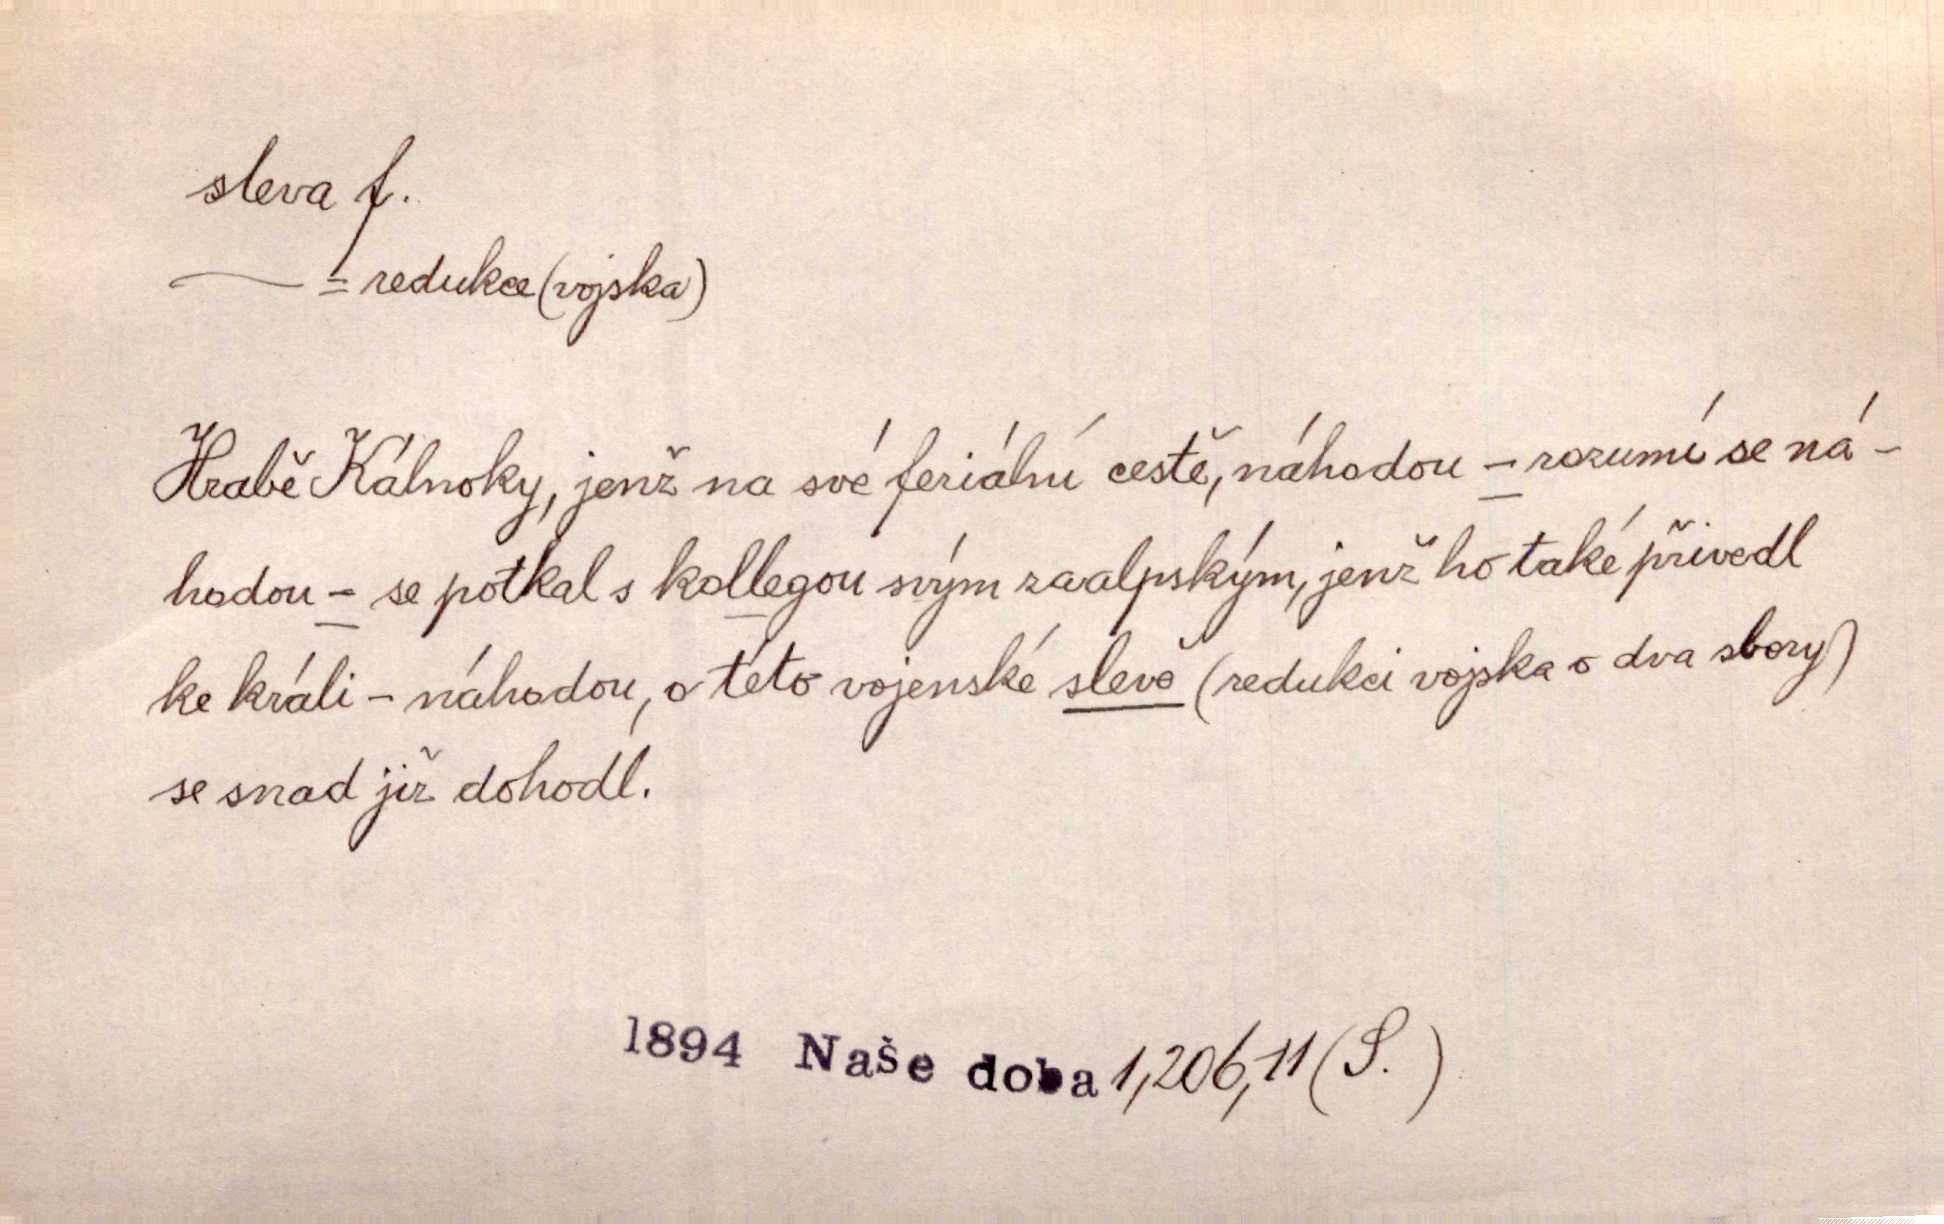 sleva f.
— = redukce (vojska)
Hrabě Kálnoky, jenž na své feriální cestě, náhodou – rozumí se ná-
hodou – se potkal s kollegou svým zaalpským, jenž ho také přivedl
ke králi – náhodou, o této vojenské slevě (redukci vojska o dva sbory)
se snad již dohodl.
1894 Naše doba 1, 206, 11 (S. )